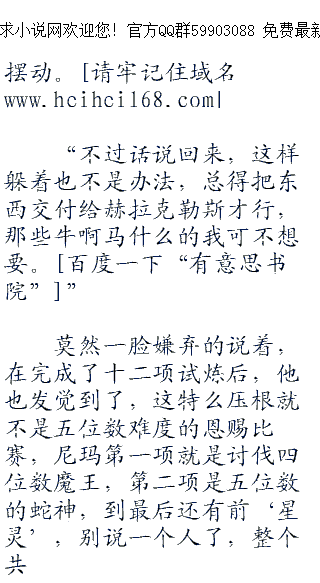 求小说网欢迎您！官方QQ群59903088 免费最新
摆动。[请牢记住域名
www.hcihci168.com|
“不过话说回来，这样
躲着也不是办法，总得把东
西交付给赫拉克勒斯才行，
那些牛啊马什么的我可不想
要。[百度一下“有意思书
院”]”
莫然一脸嫌弃的说着，
在完成了十二项试炼后，他
也发觉到了，这特么压根就
不是五位数难度的恩赐比
赛，尼玛第一项就是讨伐四
位数魔王，第二项是五位数
的蛇神，到最后还有前‘星
灵’，别说一个人了，整个
共